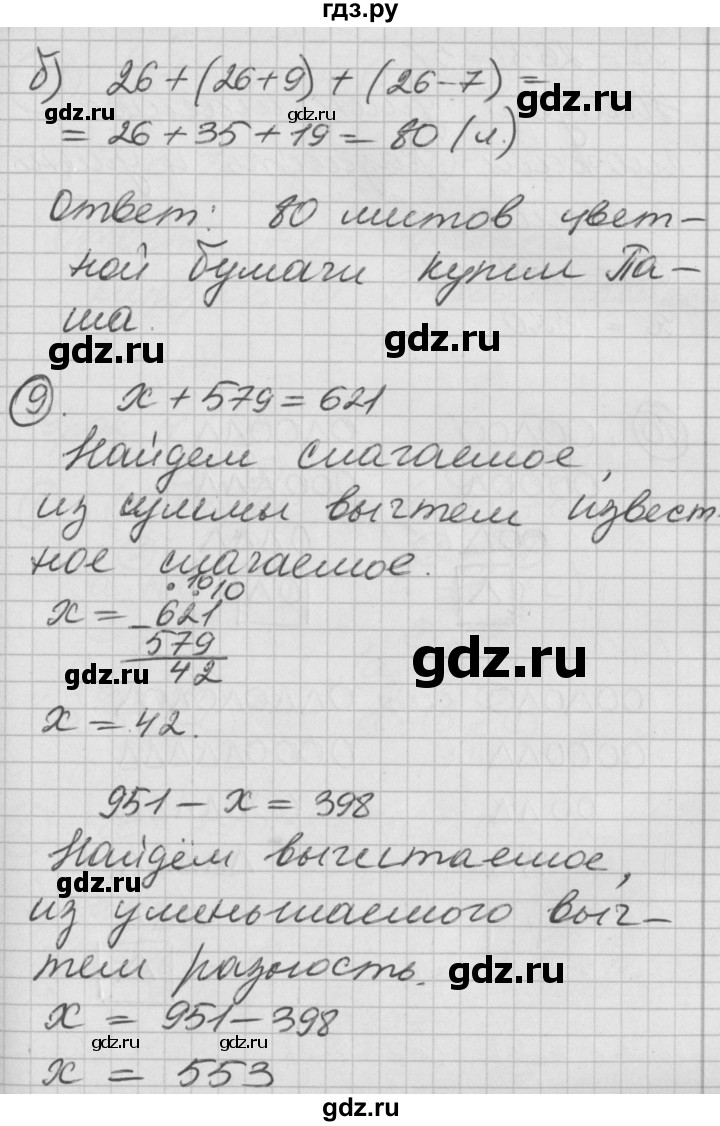 гдз.ру
б) 26+(26+9)+(26-7)=
gdz.ru gdz.ru gdz.ru
=26+35+19=80(л.)
Ответ: 80 листов цвет-
ной бумаги купил Па-
ша.
gdz.ru gdz.ru
9. x+579=621
Найдем слагаемое,
из суммы вычтем извест-
ное слагаемое.
10 10
x= 621
- 579
gdz.ru 42 gdz.ru
x=42.
951-x=398
Найдём вычитаемое,
gdz.ru
из уменьшаемого выч-
тем разность. gdz.ru
x = 951-398
gdz.ru gdz.ru
x = 553
gdz.ru